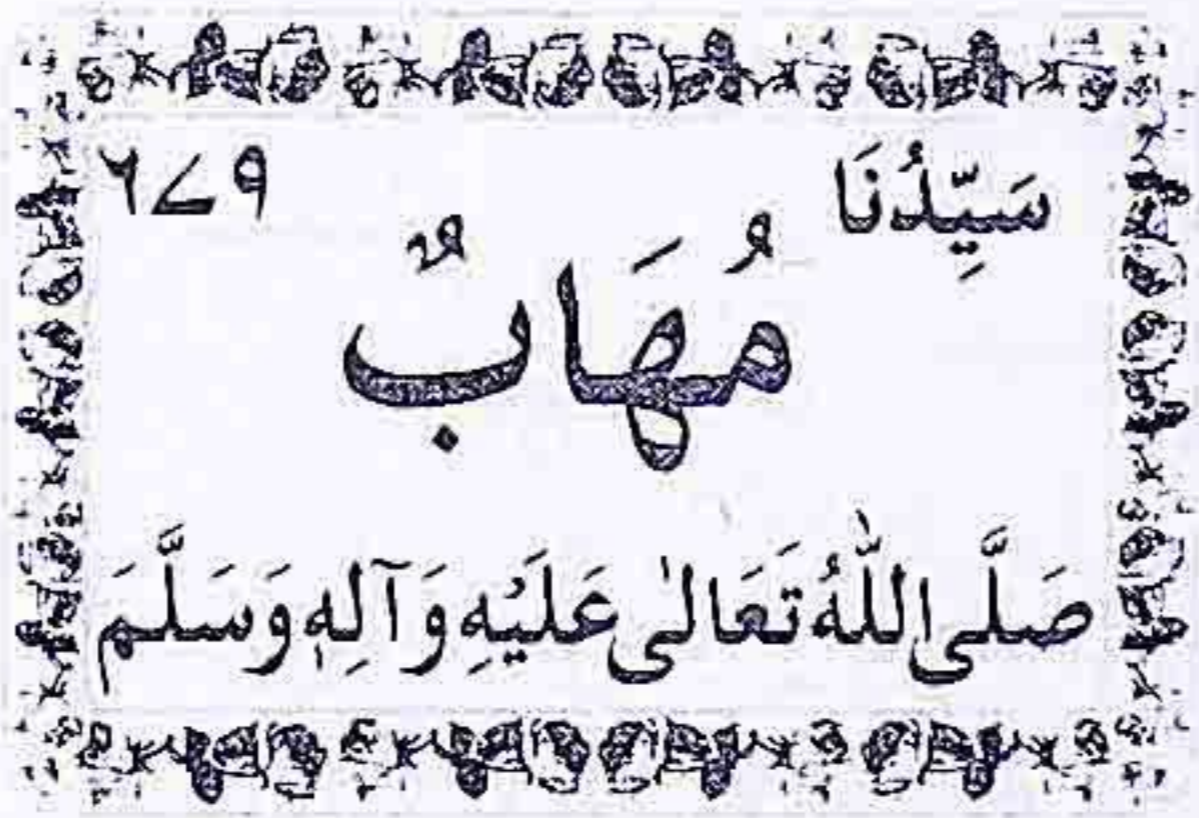 سَيِّدُنَا ٦٧٩
مُهَابٌ
صَلَّى اللّٰهُ تَعَالٰى عَلَيْهِ وَآلِهٖ وَسَلَّمَ